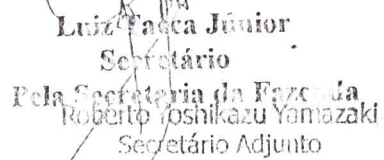 Luiz Tacca Júnior
Secretário
Pela Secretaria da Fazenda
Roberto Yoshikazu Yamazaki
Secretário Adjunto